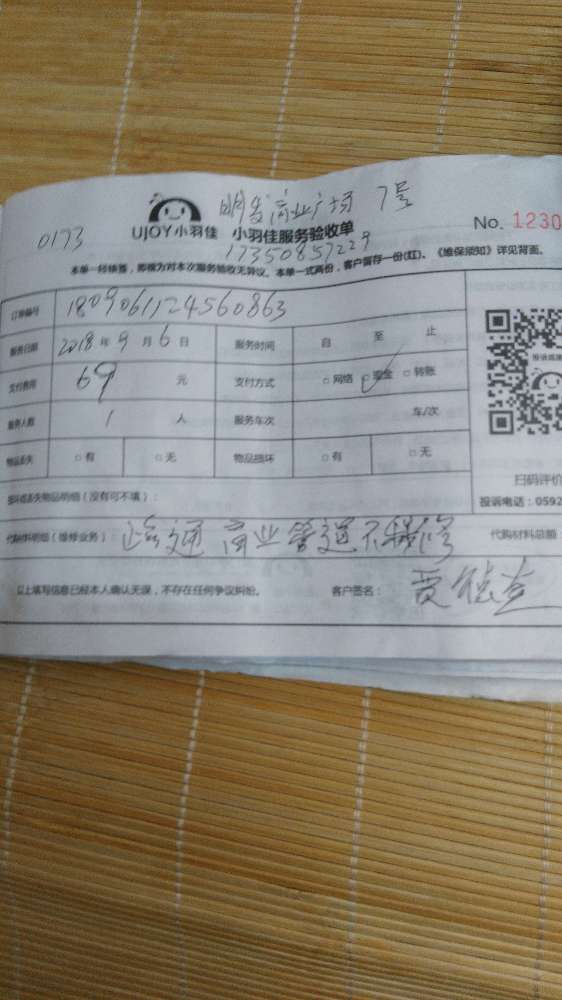 明发商业广场 7号
UJOY小羽佳 小羽佳服务验收单
No. 1230
0173
17350857229
本单一经核签，即视为对本次服务验收无异议。本单一式两份，客户留存一份(红)，《维保须知》详见背面。
订单编号 1809061124560863
服务日期 2018年9月6日 服务时间 自 至 止
支付费用 69 元 支付方式 □网络 □现金 □转账
服务人数 1 人 服务车次 车/次
物品丢失 □有 □无 物品损坏 □有 □无
扫码评价
损坏或丢失物品明细（没有可不填）：
投诉电话：0592
代购材料明细（维修业务）： 疏通 商业管道不保修
代购材料总额
以上填写信息已经本人确认无误，不存在任何争议纠纷。 客户签名：